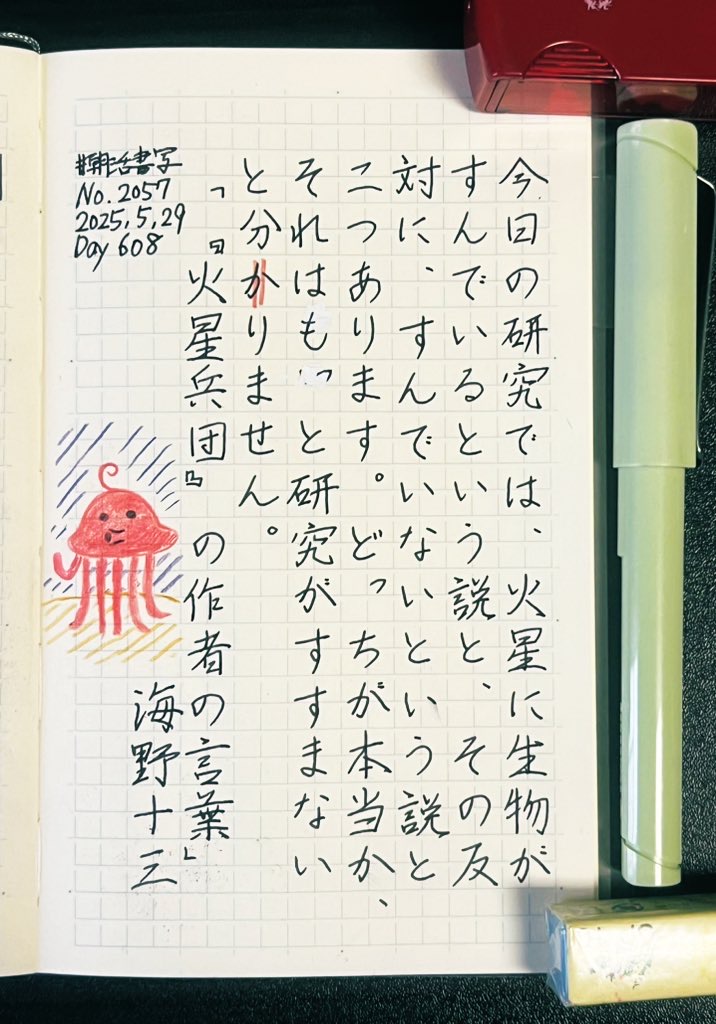 #朝活書写
No. 2057
2025, 5, 29
Day 608
今日の研究では、火星に生物が
すんでいるという説と、その反
対に、すんでいないという説と
二つあります。どっちが本当か、
それはもっと研究がすすまない
と分かりません。
「『火星兵団』の作者の言葉」
海野十三